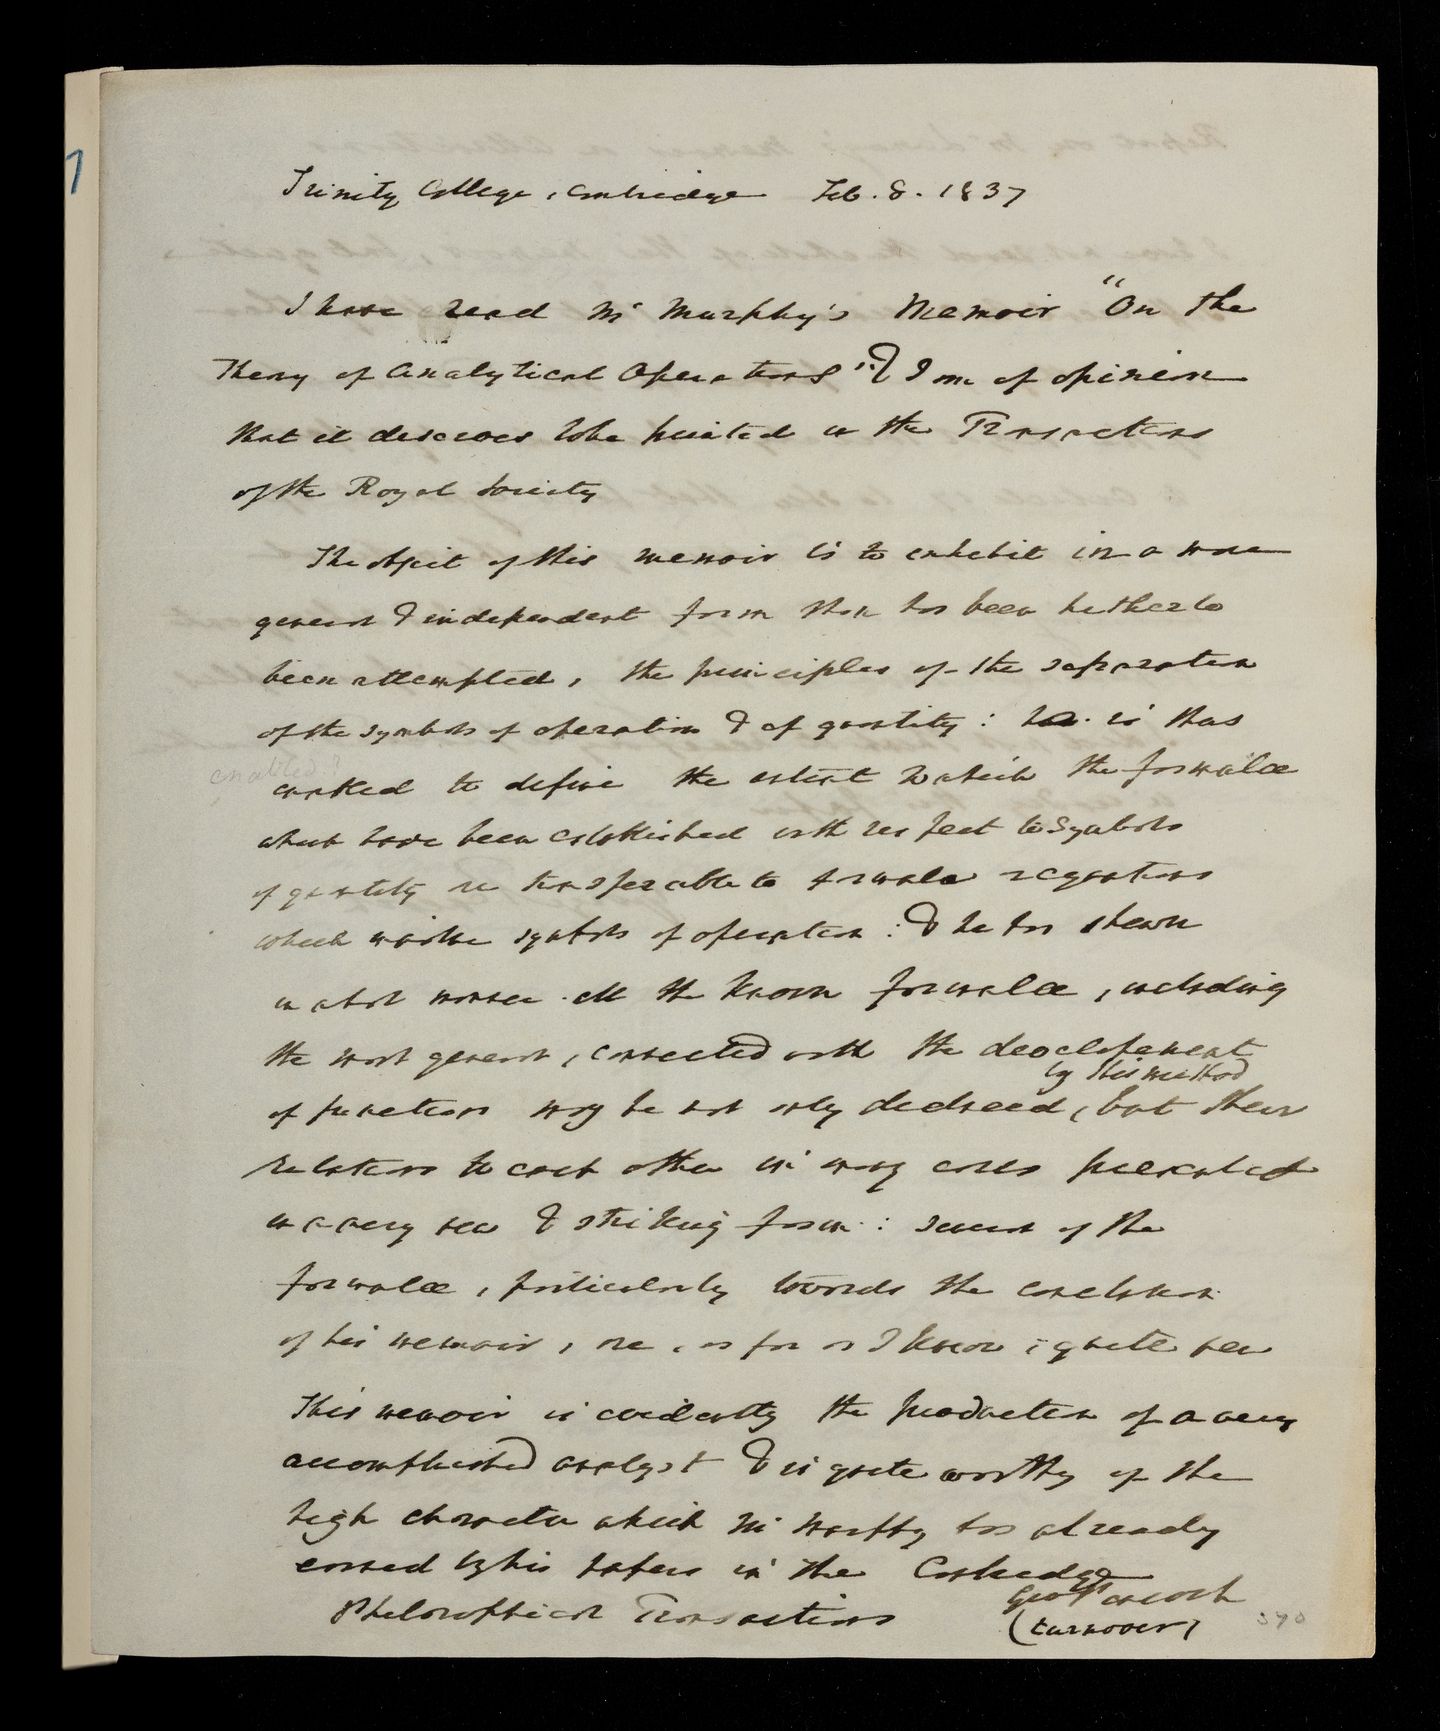 7
Trinity College, Cambridge Feb. 8. 1837
I have read Mr Murphy's Memoir "On the
Theory of Analytical Operations" & I am of opinion
that it deserves to be printed in the Transactions
of the Royal Society
The object of this memoir is to exhibit in a more
general & independent form than has been hitherto
been attempted, the principles of the separation
of the symbols of operation & of quantity: is thus
enabled?
to define the extent to which the formulæ
which have been established with respect to symbols
of quantity are transferable to formulæ
which involve symbols of operation: & he has shewn
in what manner all the known formulæ, including
the most general, connected with the developement
by this method
of functions may be not only deduced, but their
relations to each other in many cases presented
in a very new & striking form: several of the
formulæ, particularly towards the conclusion
of his memoir, are, as far as I know, quite new
This memoir is evidently the production of a very
accomplished analyst & is quite worthy of the
high character which Mr Murphy has already
earned by his papers in the Cambridge
Philosophical Transactions
Geo Peacock
(turnover)
370